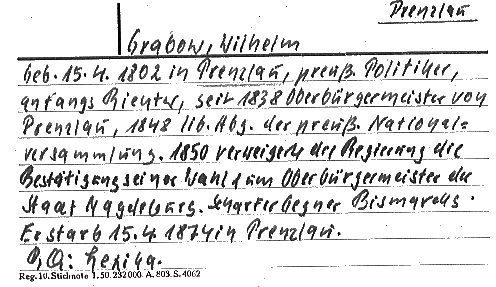 Prenzlau
Grabow, Wilhelm
Geb. 15.4. 1802 in Prenzlau, preuß. Politiker,
anfangs Richter, seit 1838 Oberbürgermeister von
Prenzlau, 1848 lib. Abg. der preuß. National=
versammlung. 1850 verweigerte die Regierung die
Bestätigung seiner Wahl zum Oberbürgermeister der
Stadt Magdeburg. Scharfer Gegner Bismarcks.
Er starb 15.4. 1874 in Prenzlau.
Qu: Lexika.
Reg. 10. Stichnote 1. 50. 232000. A. 803. S. 4062